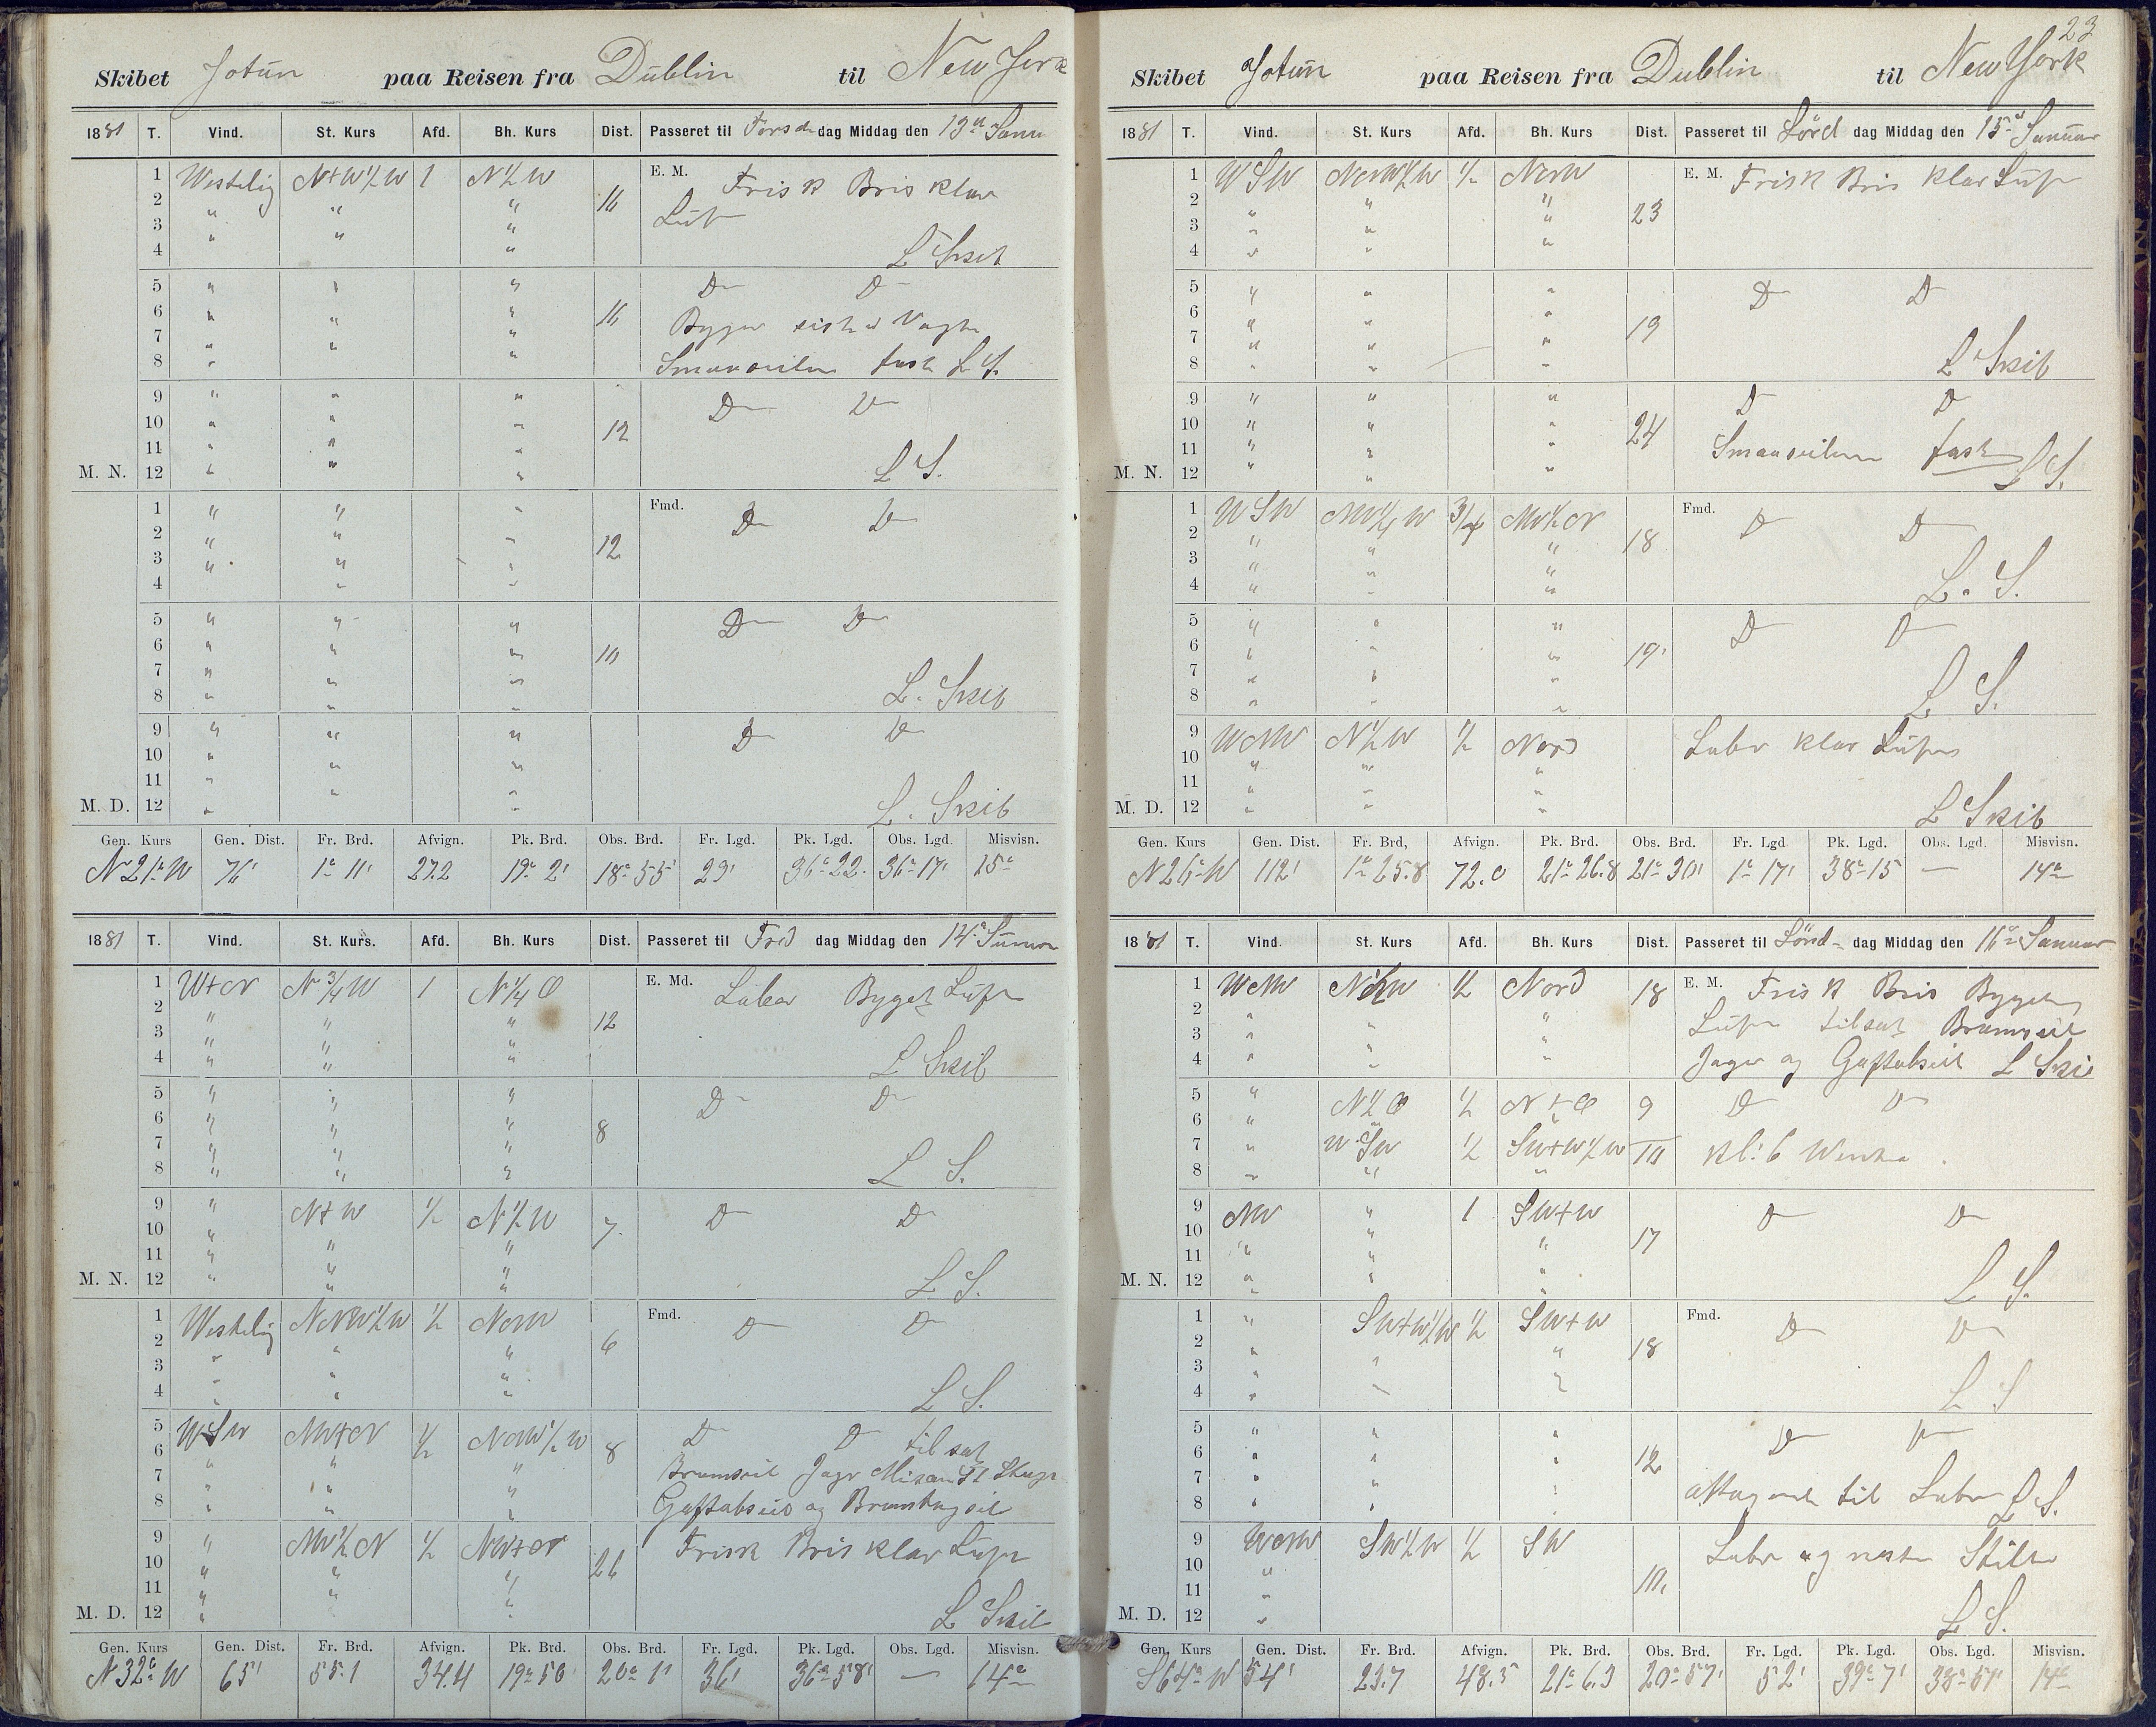 Skibet Jotun paa Reisen fra Dublin til New Jork
1881 T. Vind. St. Kurs Afd. Bh. Kurs Dist. Passeret til Torsd dag Middag den 13de Janu
1 Westelig N+W½W 1 N½W E. M. Frisk Bris klar
2 " " " 16 Luft
3 " " "
4 L Skib
5 " " " D D
6 " " " 16 Byger sidste Vagt
7 " " "
8 " " " Smaaseilene fast L S.
9 " " " D D
10 " " " 12
11 " " "
M. N. 12 " " " L S.
1 " " " Fmd. D D
2 " " "
3 " " " 12
4 " "
5 " " " D D
6 " " " 10
7 " " "
8 " " " L. Skib
9 " " " D D
10 " " "
11 " " "
M. D. 12 " " L. Skib
Gen. Kurs Gen. Dist. Fr. Brd. Afvign. Pk. Brd. Obs. Brd. Fr. Lgd. Pk. Lgd. Obs. Lgd. Misvisn.
N 21° W 76' 1° 11' 27.2 19° 2' 18° 55' 29' 36° 22' 36° 17' 15°
1881 T. Vind. St. Kurs. Afd. Bh. Kurs Dist. Passeret til Fred dag Middag den 14de Januar
1 W+N N¾W 1 N¼O E. Md. Laber Byget Luft
2 " " "
3 " " " 12
4 " " " L Skib
5 " " " D D
6 " " "
7 " " " 8
8 " " " L S.
9 " N+W ½ N½W 7. D D
10 " " "
11 " " "
M. N. 12 " " " L S.
1 Westelig NNW½W ½ NNW Fmd. D D
2 " " " 6
3 " " "
4 " " " L S.
5 WSW NW+N ½ NNW½W 8 D D tilsat
6 " " "
7 " " " Bramseil Jager Mesan St
8 " " " Gaffelabseil og Bramstagseil
9 " NW½N ½ NW+N Frisk Bris klar Luft
10 " " " 26
11 " " "
M. D. 12 " " L Skib
Gen. Kurs Gen. Dist. Fr. Brd. Afvign. Pk. Brd. Obs. Brd. Fr. Lgd. Pk. Lgd. Obs. Lgd. Misvisn.
N 32° W 65' 55.1 34.4 19° 50' 20° 1' 36' 36° 58' — 14°
23
Skibet Jotun paa Reisen fra Dublin til New York
1881 T. Vind. St. Kurs Afd. Bh. Kurs Dist. Passeret til Lörd dag Middag den 15de Januar
1 WSW NNW½W ½ NNW E. M. Frisk Bris klar Luft
2 " " " 23
3 " " "
4 " " "
5 " " " D D
6 " " " 19
7 " " "
8 " " " L Skib
9 " " " D D
10 " " " 24
11 " " " Smaaseilene fast
M. N. 12 " " " L S.
1 WSW NW¼W ¾ NW½N Fmd. D D
2 " " " 18
3 " " "
4 " " " L. S.
5 " " " D D
6 " " " 19'
7 " " "
8 " " " L S.
9 WNW N½W ½ Nord Laber klar Luft
10 " " "
11 " " "
M. D. 12 " " " L Skib
Gen. Kurs Gen. Dist. Fr. Brd, Afvign. Pk. Brd. Obs. Brd. Fr. Lgd Pk. Lgd. Obs. Lgd. Misvisn.
N 26° W 112' 1° 25.8 72.0 21° 26.8 21° 30' 1° 17' 38° 15 — 14°
1881 T. Vind. St. Kurs Afd. Bh. Kurs Dist. Passeret til Sönd dag Middag den 16de Januar
1 WNW N½W ½ Nord 18 E. M. Frisk Bris Byget
2 " " " Luft tilsat Bramseil
3 " " "
4 " " " Jager og Gaffelabseil L Skib
5 " N½O ½ N+O 9 D D
6 " " "
7 " WSW ½ SW+W½W 10 kl: 6 Wendte
8 " " "
9 NW " 1 SW+W D D
10 " " 17
11 " " "
M. N. 12 " " " L S.
1 " SW+W½W ½ SW+W Fmd. D D
2 " " 18
3 " "
4 " " " L S
5 " " " D D
6 " " " 12
7 " " "
8 " " " aftagende til Laber L S.
9 WNW SW½W ½ SW Laber og næsten Stille
10 "
11 " 10.
M. D. 12 " L S.
Gen. Kurs Gen. Dist. Fr. Brd. Afvign. Pk. Brd. Obs. Brd. Fr. Lgd. Pk. Lgd. Obs. Lgd. Misvisn.
S 64° W 54' 23.7 48.5 21° 6.3 20° 57' 52' 39° 7' 38° 51' 14°